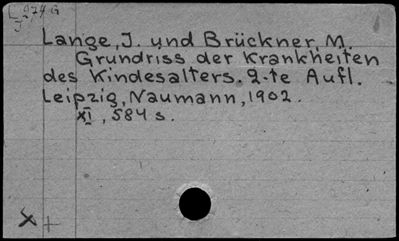 L 974 G
J.
Lange, J. und Brückner, M.
Grundriss der Krankheiten
des Kindesalters. 2-te Aufl.
Leipzig, Naumann, 1902.
XI, 584 s.